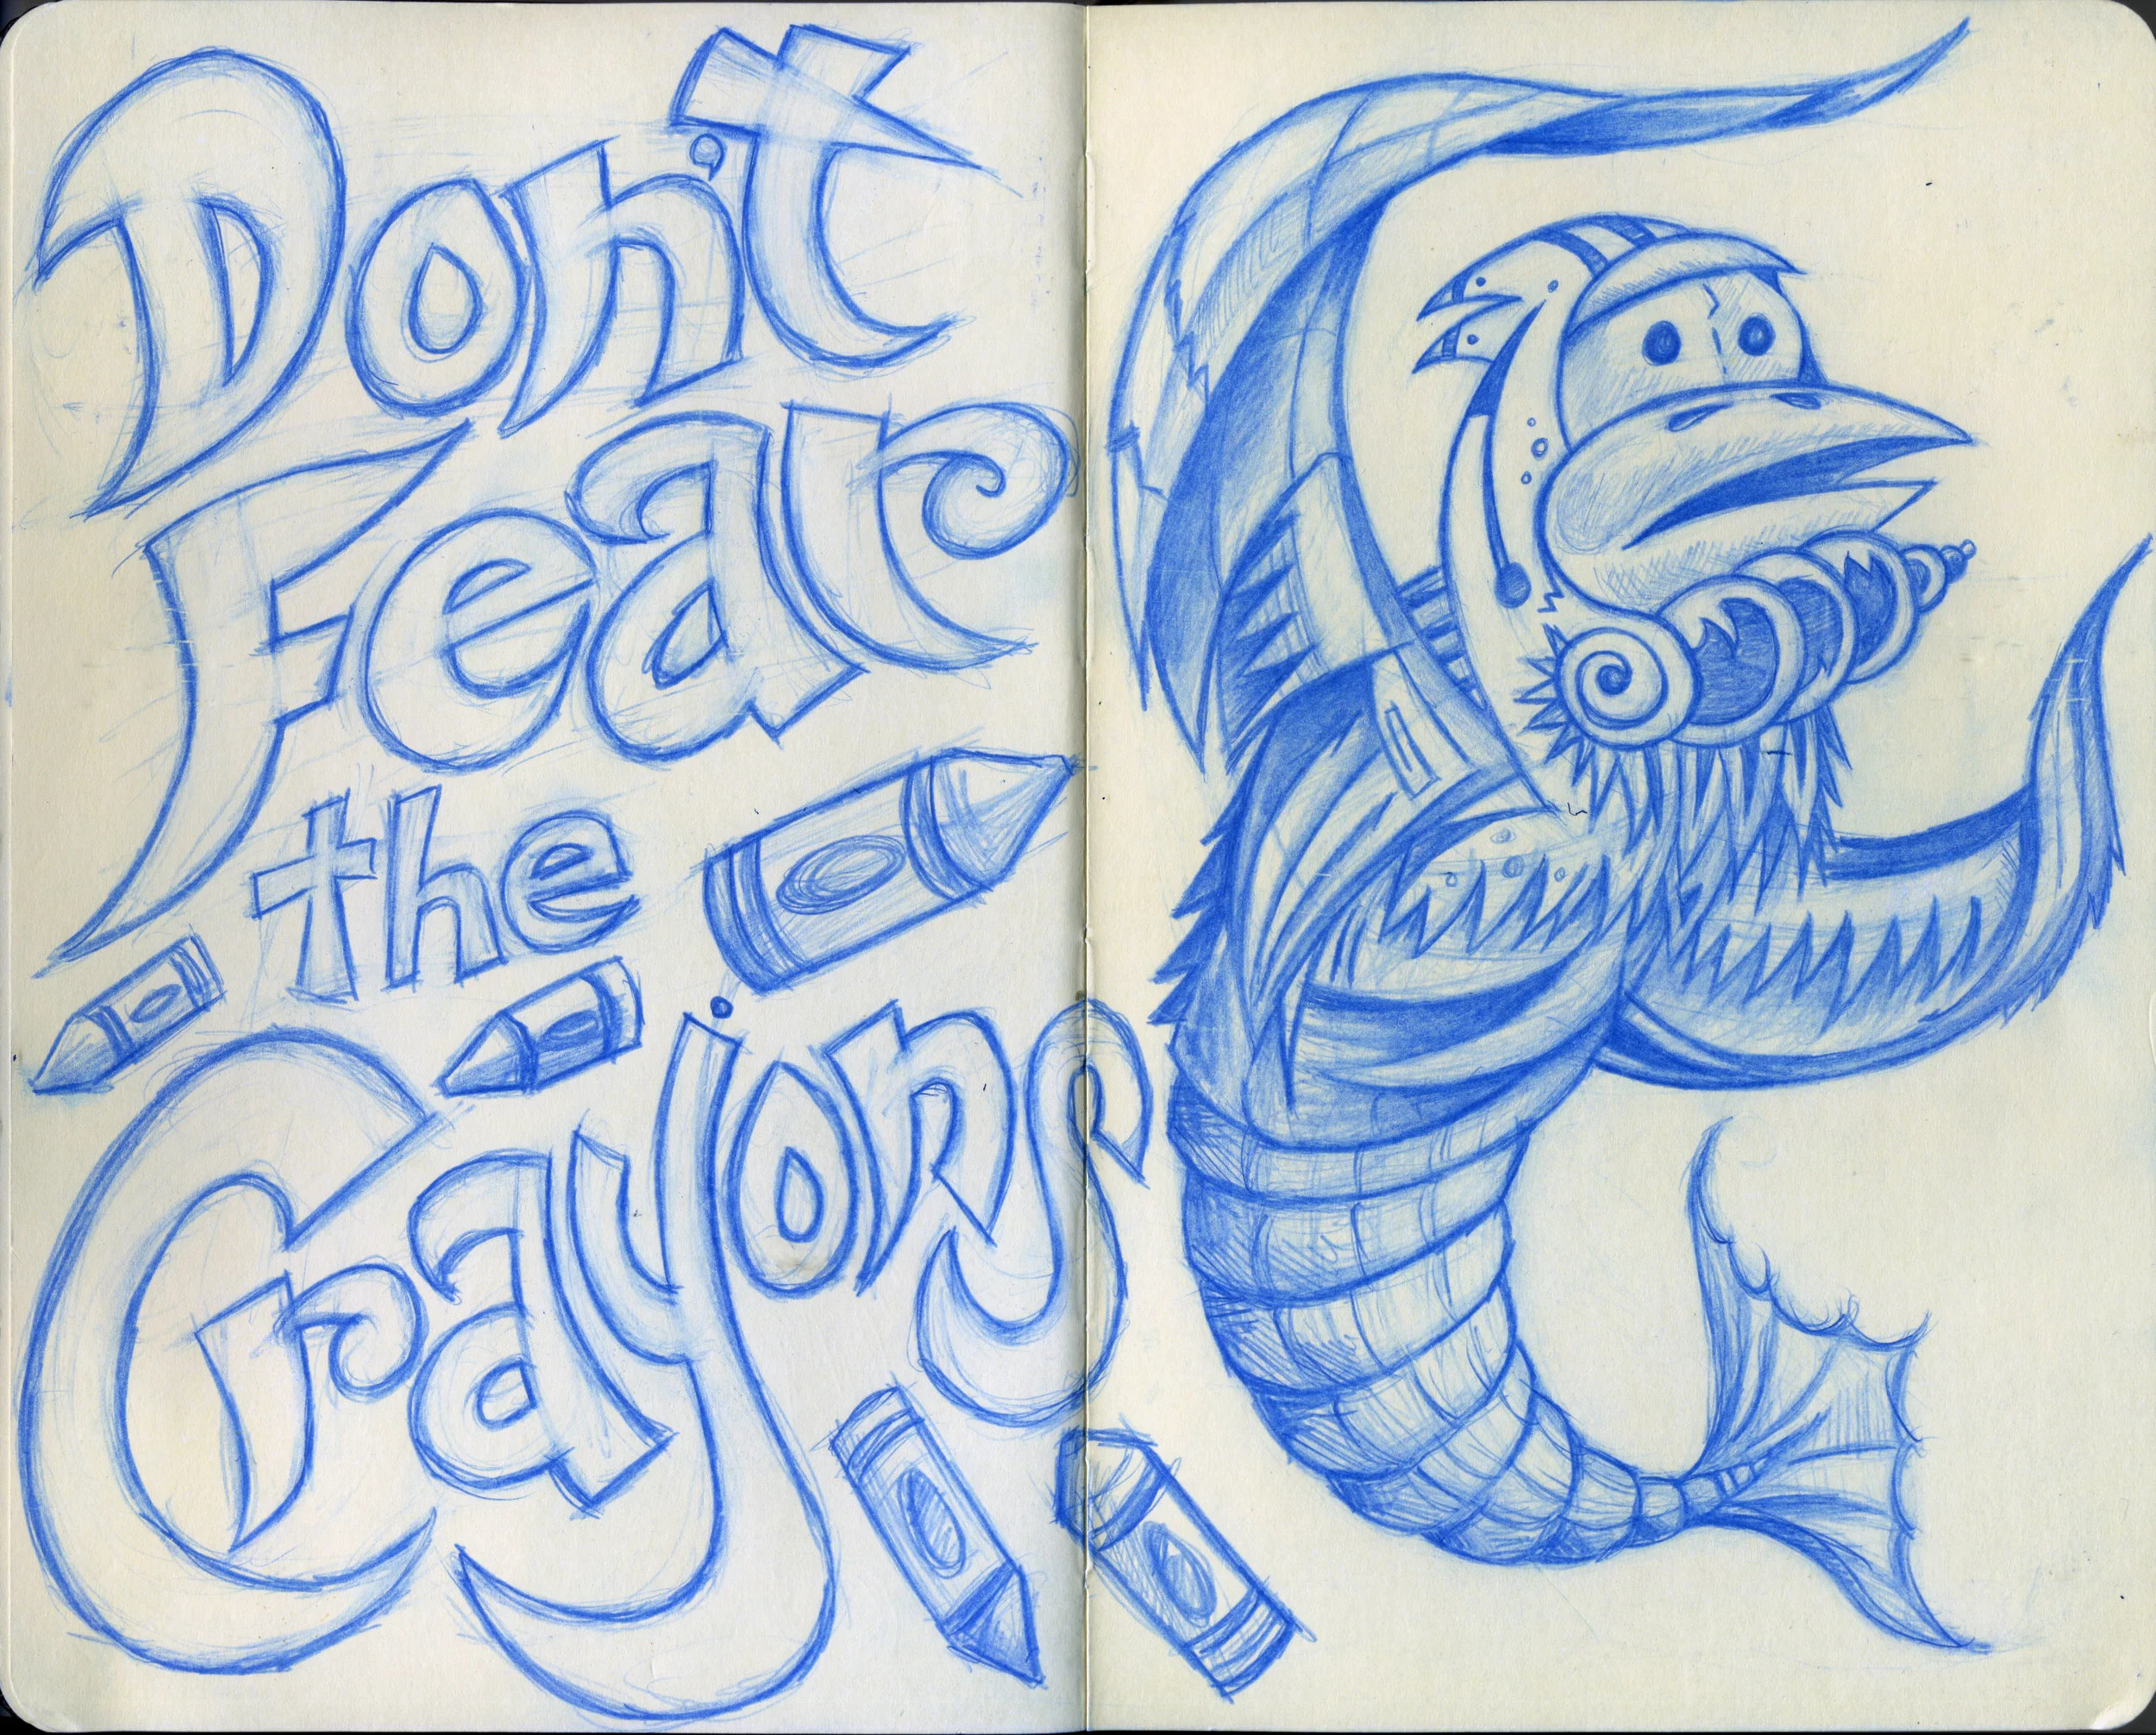 Don't
Fear
the
Crayons